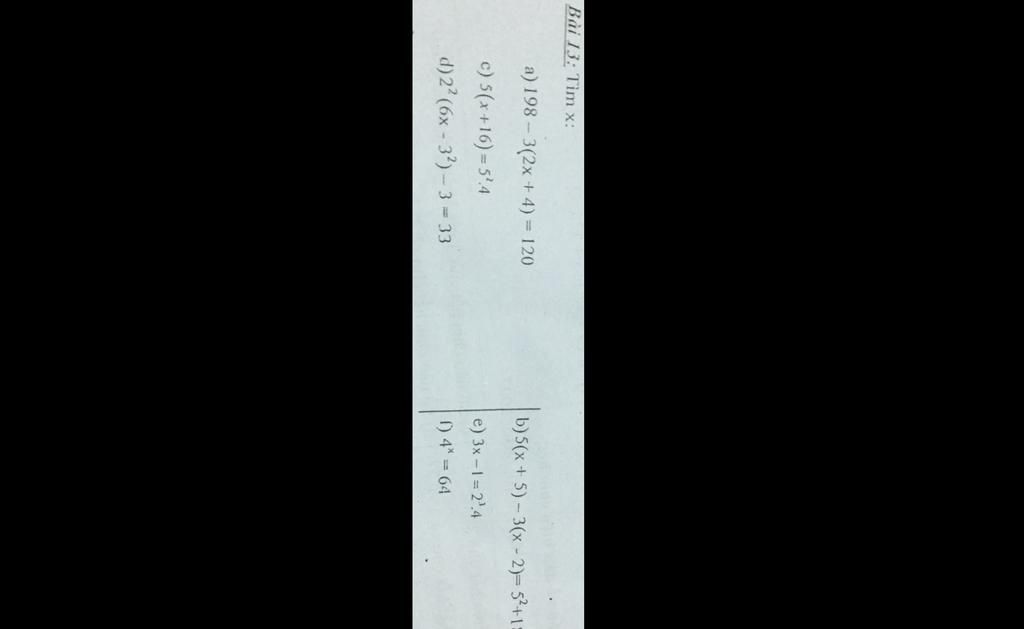 Bài 13: Tìm x:
a) 198 – 3(2x + 4) = 120
b) 5(x + 5) – 3(x - 2)= 5²+1
c) 5(x+16) = 5².4
e) 3x – 1 = 2³.4
d) 2² (6x - 3²) – 3 = 33
f) 4ˣ = 64